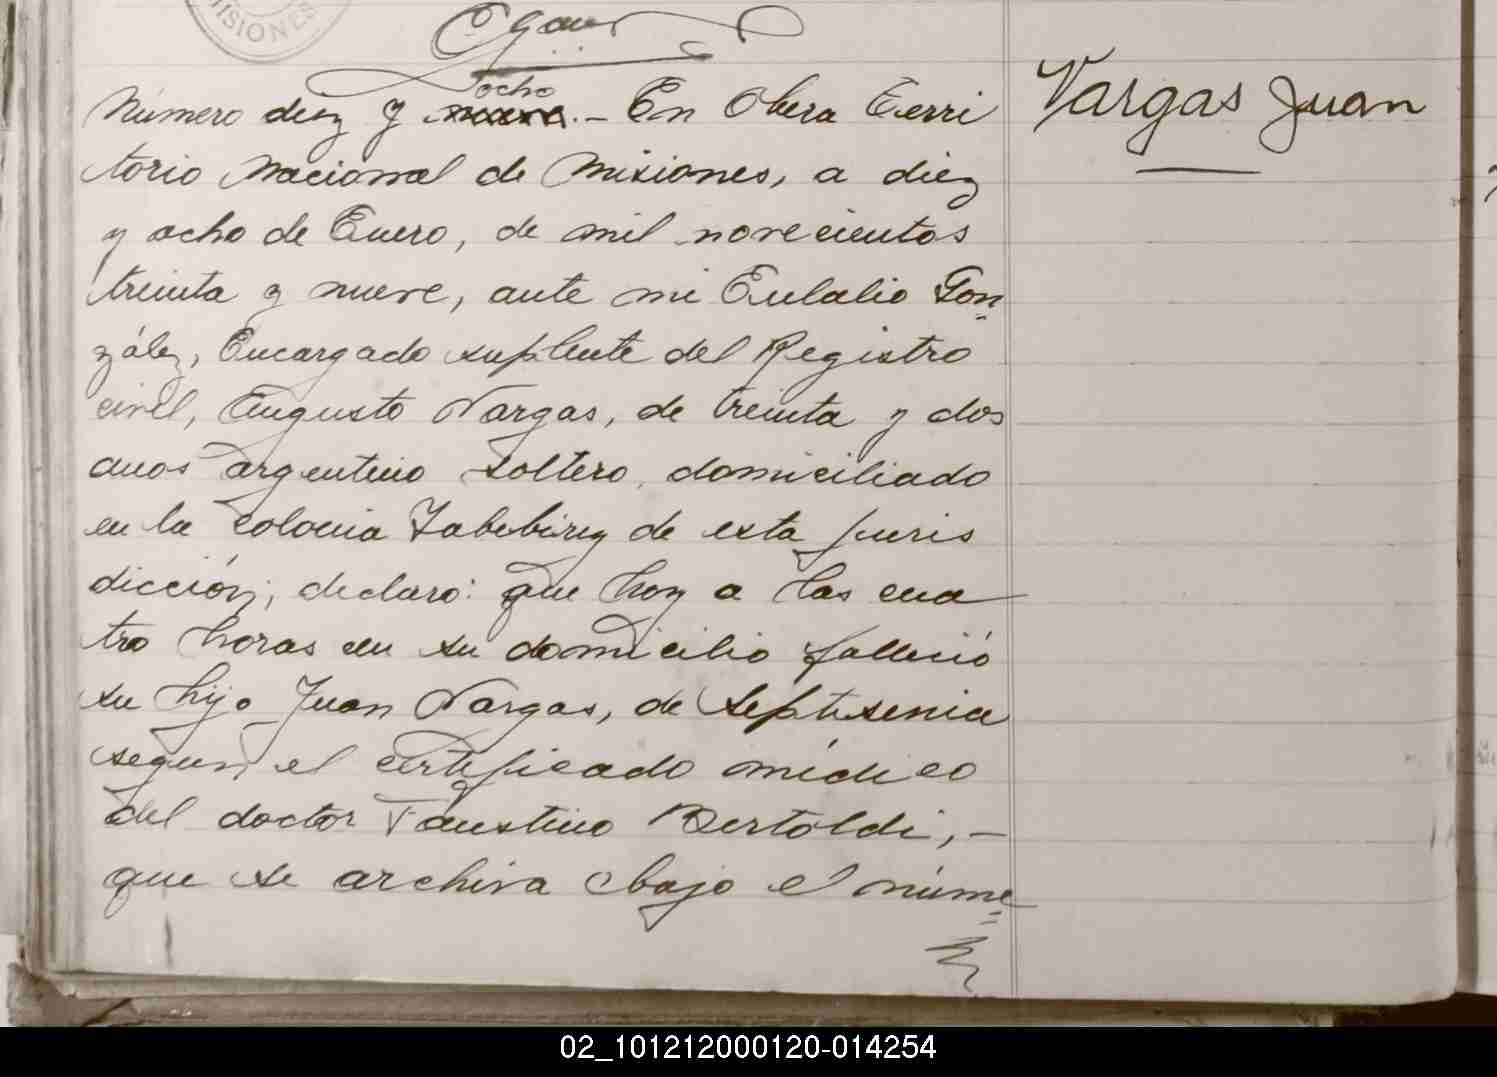 MISIONES
ocho
Número diez y nueve. - En Obera Terri
torio Nacional de Misiones, a diez
y ocho de Enero, de mil novecientos
treinta y nueve, ante mi Eulalio Gon
zález, Encargado suplente del Registro
civil, Augusto Vargas, de treinta y dos
anos argentino soltero, domiciliado
en la colonia Yabebiry de esta juris
dicción; declaró: que hoy a las cua
tro horas en su domicilio falleció
su hijo Juan Vargas, de septisenia
segun el certificado médico
del doctor Faustino Bertoldi, -
que se archiva bajo el núme
Vargas Juan
02_101212000120-014254